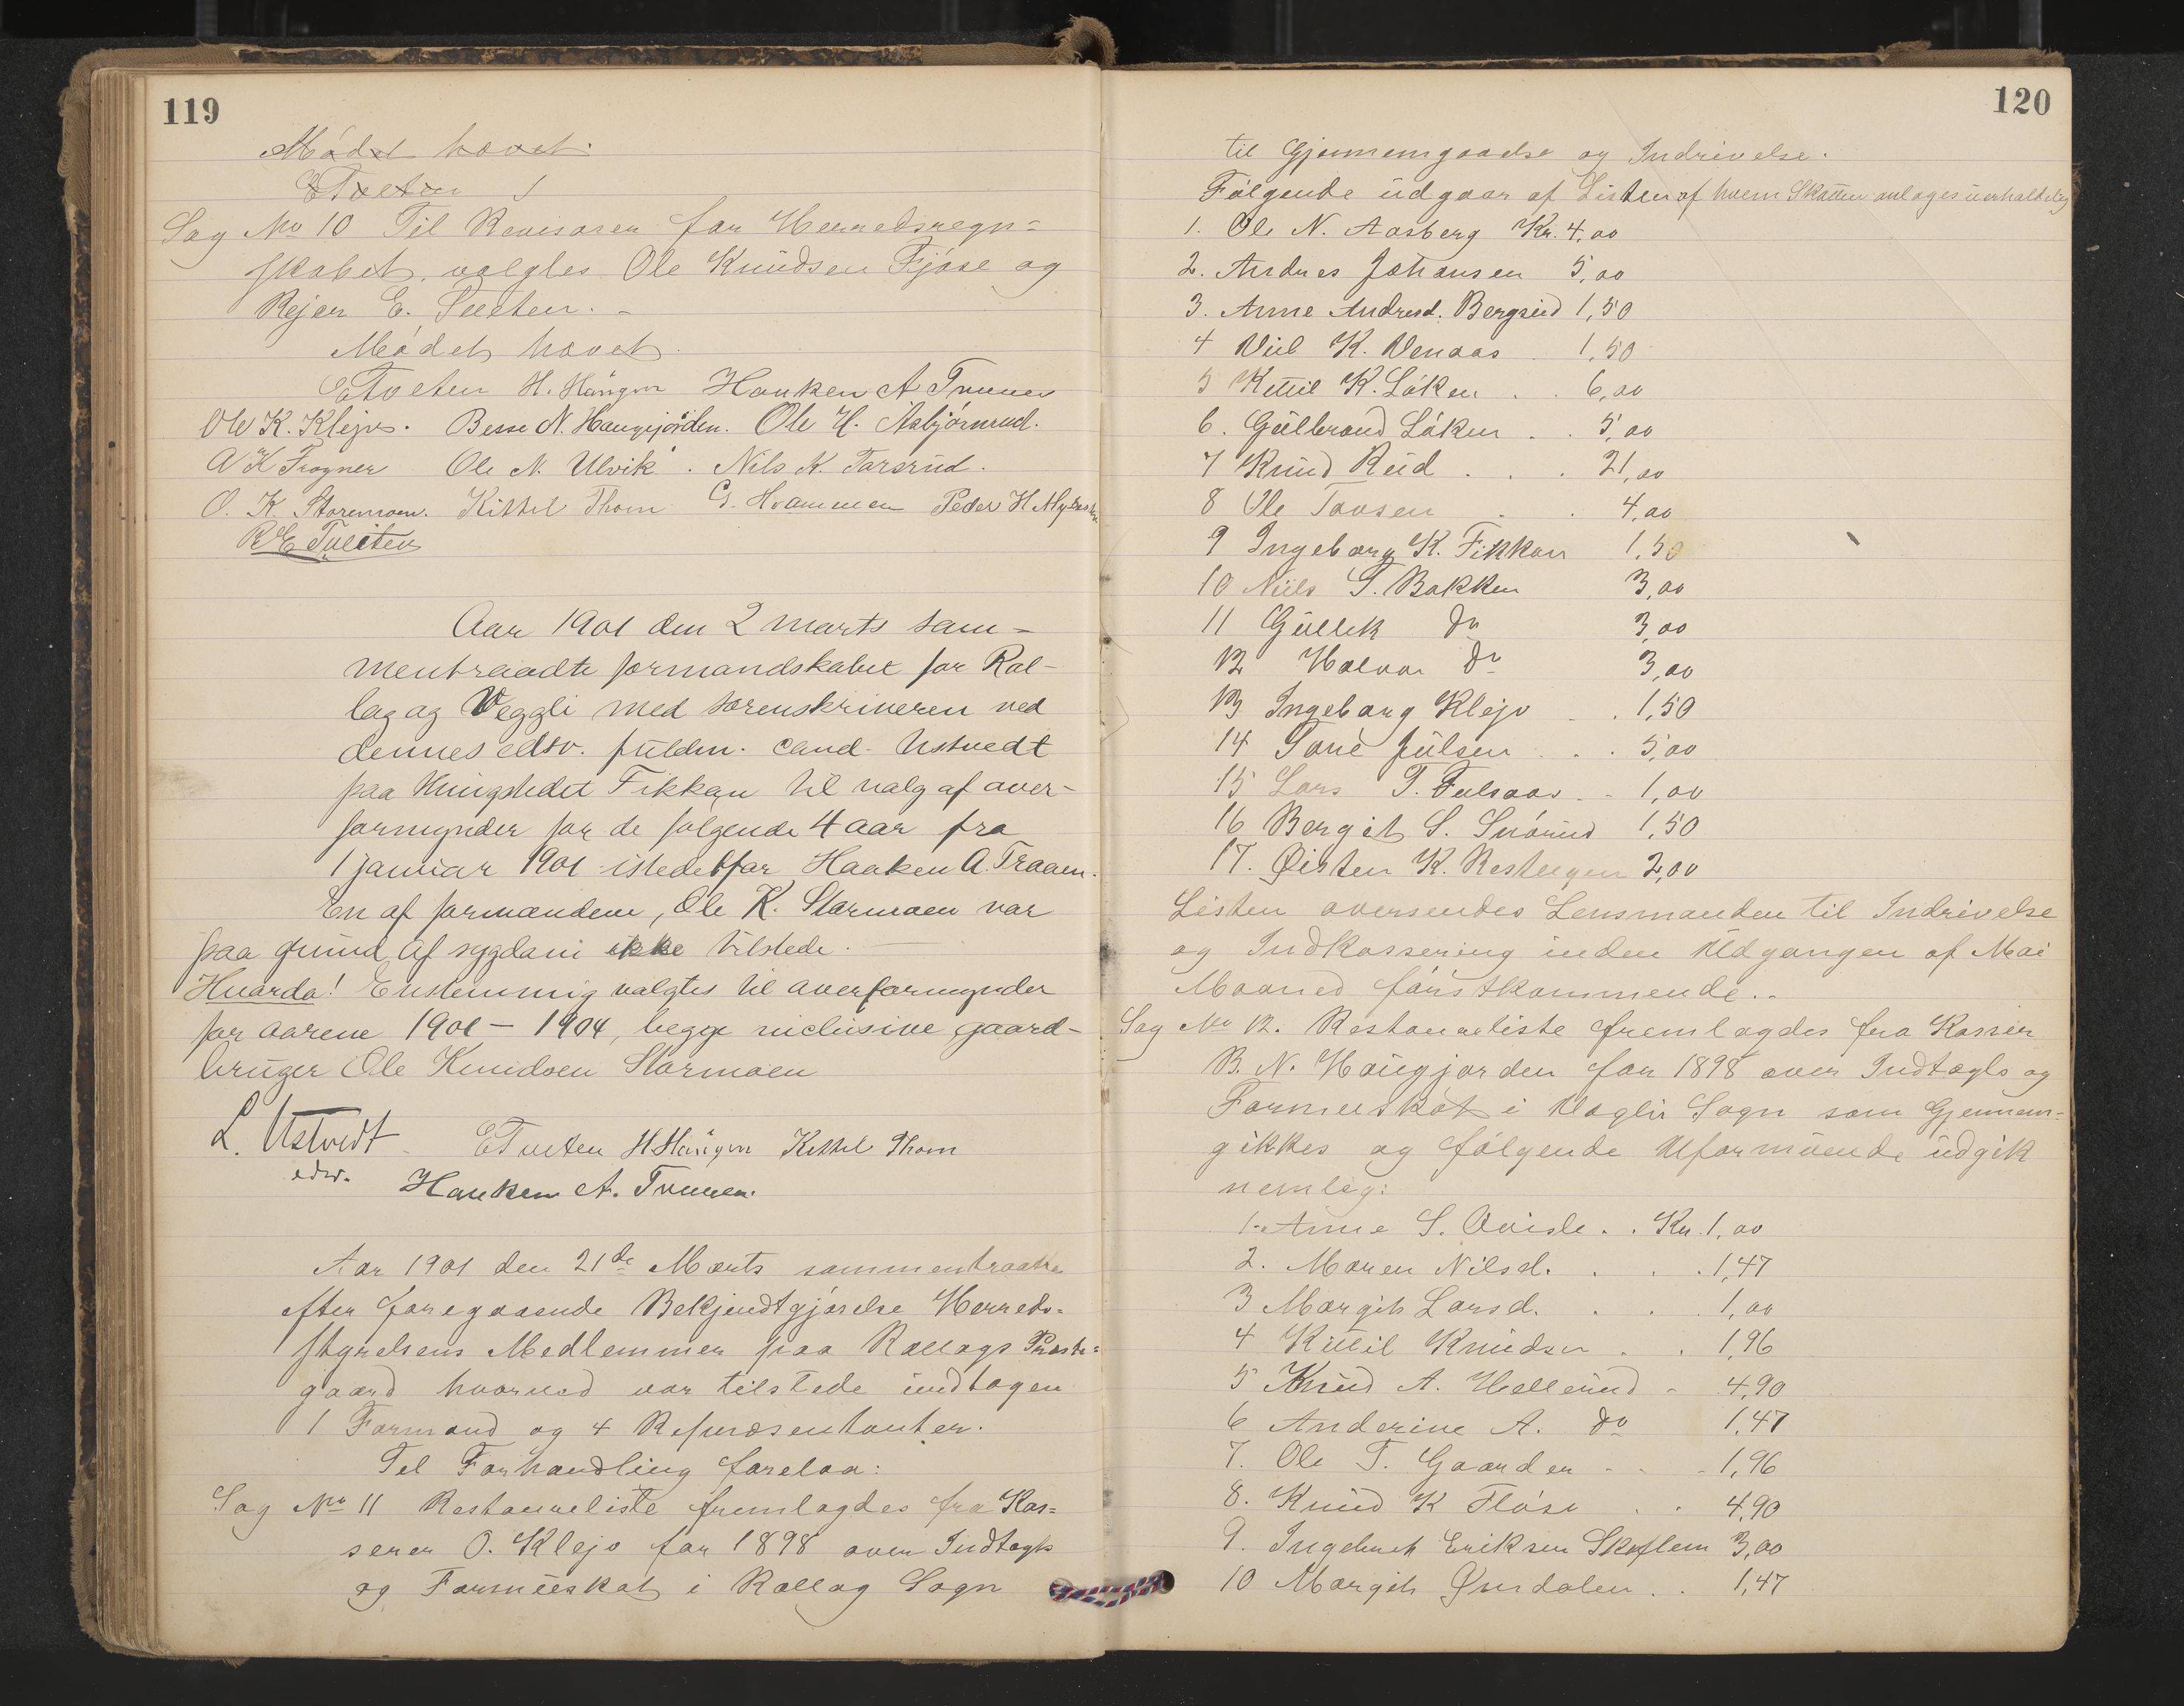 119
Mødet hævet.
ETveten
Sag No 10 Til Revisorer for Herredsregn=
skabet, valgtes Ole Knudsen Fjøse og
Rejer E. Tveten. -
Mødet hævet.
ETveten H. Haugen Haaken A Traaen
Ole K. Klejvs. Besse N. Haugjorden. Ole H. Asbjørnrud.
A K Frogner Ole N. Ulvik. Nils K. Tarsrud.
O. K. Stormoen. Kittil Thom G. Hvammen Peder H
R E Tveiten
Aar 1901 den 2 marts sam-
mentraadte formandskabet for Rol-
lag og Veggli med sorenskriveren ved
dennes edsv. fuldm. cand. Ustvedt
paa thingstedet Fikkan til valg af over-
formynder for de følgende 4 aar fra
1 januar 1901 istedetfor Haaken A. Traaen.
En af formændene, Ole K. Stormoen var
paa grund af sygdom ikke tilstede.
Hvorda! Enstemmig valgtes til overformynder
for aarene 1901 - 1904, begge inclusive, gaard-
bruger Ole Knudsen Stormoen
L. Ustvedt ETveten H Haugen Kittil Thom
edsv. Haaken A. Traaen.
Aar 1901 den 21de Marts sammentraadte
efter foregaaende Bekjendtgjørelse Herreds=
styrelsens Medlemmer paa Rollags Præste=
gaard hvorved var tilstede indtagen
1 Formand og 4 Repræsentanter.
Til Forhandling forelaa:
Sag No 11 Restanceliste fremlagdes fra Kas=
serer O. Klejv for 1898 over Indtægts
og Formueskat i Rollag Sogn
120
til Gjennemgaaelse og Indrivelse.
Følgende udgaar af Listen af hvem Skatten antages uerholdelig
1. Ole N. Aasberg Kr. 4,00
2. Andres Johansen 5,00
3. Anne Andresd. Bergsrud 1,50
4 K. Venaas . 1,50
5 Kittil K. Løken . . 6,00
6. Gulbrand Løken . . 5,00
7 Knud Rud . . . 21,00
8 Ole Tovsen . . 4,00
9 Ingeborg K. Fikkan 1,50
10 Niels T. Bakken 3,00
11 Gullik do 3,00
12 Halvor do 3,00
13 Ingeborg Klejv . . 1,50
14 Tone Julsen . . 5,00
15 Lars T. . . 1,00
16 Bergit S. 1,50
17. Øisten K. 2,00
Listen oversendes Lensmanden til Indrivelse
og Indkassering inden Udgangen af Mai
Maaned førstkommende..
Sag No 12. Restanceliste fremlagdes fra Kasser
B. N. Haugjorden for 1898 over Indtægts og
Formueskat i Veglis Sogn som Gjennem-
gikkes og følgende Uformuende udgik
nemlig:
1. Anne S. . . Kr. 1,00
2. Maren Nilsd. . . . 1,47
3 Margit Larsd. . . . 1,00
4 Kittil Knudsen . . 1,96
5 Knud A. Hellerud - 4,90
6 Anderine A. do 1,47
7. Ole T. Gaarden - - - 1,96
8. Knud K Fløse . . 4,90
9. Ingebret Eriksen Skoflem 3,00
10 Margit Øvredalen . . 1,47